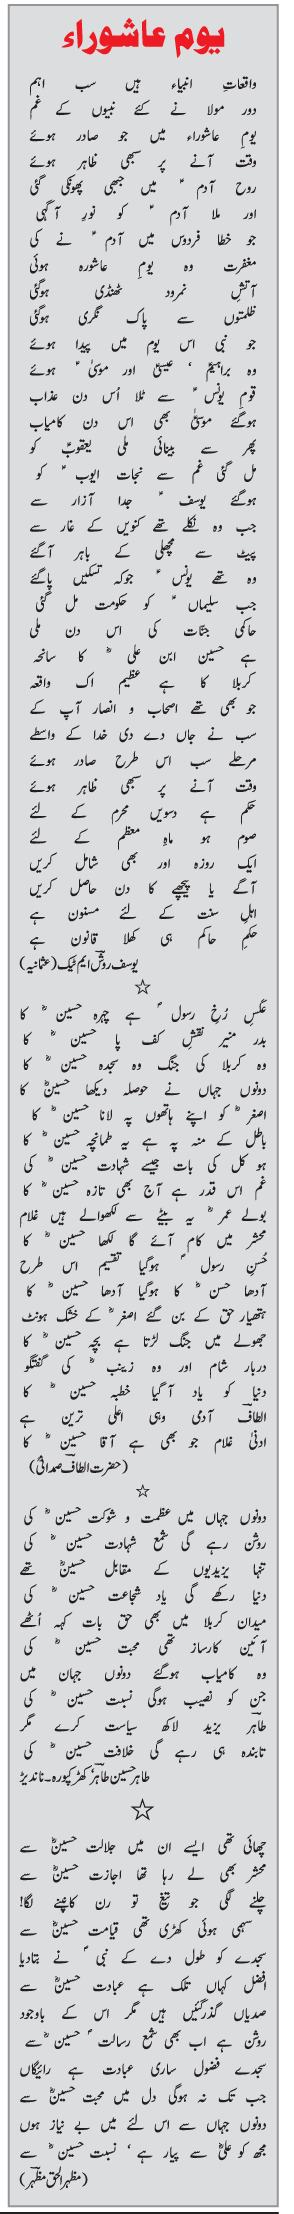 یوم عاشوراء
واقعاتِ انبیاء ہیں سب اہم
دور مولا نے کئے نبیوں کے غم
یومِ عاشوراء میں جو صادر ہوئے
وقت آنے پر سبھی ظاہر ہوئے
روح آدمؑ میں جبھی پھونکی گئی
اور ملا آدمؑ کو نورِ آگہی
جو خطا فردوس میں آدمؑ نے کی
مغفرت وہ یومِ عاشورہ ہوئی
آتشِ نمرود ٹھنڈی ہوگئی
ظلمتوں سے پاک نگری ہوگئی
جو نبی اس یوم میں پیدا ہوئے
وہ براہیمؑ ، عیسیٰؑ اور موسیٰؑ ہوئے
قومِ یونسؑ سے ٹلا اُس دن عذاب
ہوگئے موسیٰؑ بھی اس دن کامیاب
پھر سے بینائی ملی یعقوبؑ کو
مل گئی غم سے نجات ایوبؑ کو
ہوگئے یوسفؑ جدا آزار سے
جب وہ نکلے تھے کنویں کے غار سے
پیٹ سے مچھلی کے باہر آگئے
وہ تھے یونسؑ جوکہ تسکیں پاگئے
جب سلیماںؑ کو حکومت مل گئی
حاکمی جنّات کی اس دن ملی
ہے حسین ابن علیؓ کا سانحہ
کربلا کا ہے عظیم اک واقعہ
جو بھی تھے اصحاب و انصار آپ کے
سب نے جاں دے دی خدا کے واسطے
مرحلے سب اس طرح صادر ہوئے
وقت آنے پر سبھی ظاہر ہوئے
حکم ہے دسویں محرم کے لئے
صوم ہو ماہِ معظم کے لئے
ایک روزہ اور بھی شامل کریں
آگے یا پیچھے کا دن حاصل کریں
اہلِ سنت کے لئے مسنون ہے
حکمِ حاکم ہی کھلا قانون ہے
یوسف روشؔ ایم ٹیک (عثمانیہ)
☆
عکسِ رُخِ رسولؐ ہے چہرہ حسینؓ کا
بدر منیر نقشِ کف پا حسینؓ کا
وہ کربلا کی جنگ وہ سجدہ حسینؓ کا
دونوں جہاں نے حوصلہ دیکھا حسینؓ کا
اصغرؓ کو اپنے ہاتھوں پہ لانا حسینؓ کا
باطل کے منہ پہ ہے یہ طمانچہ حسینؓ کا
ہو کل کی بات جیسے شہادت حسینؓ کی
غم اس قدر ہے آج بھی تازہ حسینؓ کا
بولے عمرؓ یہ بیٹے سے لکھوالے ہیں غلام
محشر میں کام آئے گا لکھا حسینؓ کا
حُسنِ رسولؐ ہوگیا تقسیم اس طرح
آدھا حسنؓ کا ہوگیا آدھا حسینؓ کا
ہتھیار حق کے بن گئے اصغرؓ کے خشک ہونٹ
جھولے میں جنگ لڑتا ہے بچہ حسینؓ کا
دربار شام اور وہ زینبؓ کی گفتگو
دنیا کو یاد آگیا خطبہ حسینؓ کا
الطافؔ آدمی وہی اعلی ترین ہے
ادنیٰ غلام جو بھی ہے آقا حسینؓ کا
(حضرت الطافؔ صمدانیؒ)
☆
دونوں جہاں میں عظمت و شوکت حسینؓ کی
روشن رہے گی شمعِ شہادت حسینؓ کی
تنہا یزیدیوں کے مقابل حسینؓ تھے
دنیا رکھے گی یاد شجاعت حسینؓ کی
میدان کربلا میں بھی حق بات کہہ اُٹھے
آئین کارساز تھی محبت حسینؓ کی
وہ کامیاب ہوگئے دونوں جہان میں
جن کو نصیب ہوگی نسبت حسینؓ کی
طاہرؔ یزید لاکھ سیاست کرے مگر
تابندہ ہی رہے گی خلافت حسینؓ کی
طاہر حسین طاہرؔ، کھڑکپورہ۔ناندیڑ
☆
چھائی تھی ایسے ان میں جلالت حسینؓ سے
محشر بھی لے رہا تھا اجازت حسینؓ سے
چلنے لگی جو تیغ تو رن کانپنے لگا!
سہمی ہوئی کھڑی تھی قیامت حسینؓ سے
سجدے کو طول دے کے نبیؐ نے بتادیا
افضل کہاں تلک ہے عبادت حسینؓ سے
صدیاں گذرگئیں ہیں مگر اس کے باوجود
روشن ہے اب بھی شمعِ رسالتؐ حسینؓ سے
سجدے فضول ساری عبادت ہے رائیگاں
جب تک نہ ہوگی دل میں محبت حسینؓ سے
دونوں جہاں سے اس لئے میں بے نیاز ہوں
مجھ کو علیؓ سے پیار ہے ، نسبت حسینؓ سے
(مظہر الحق مظہرؔ)